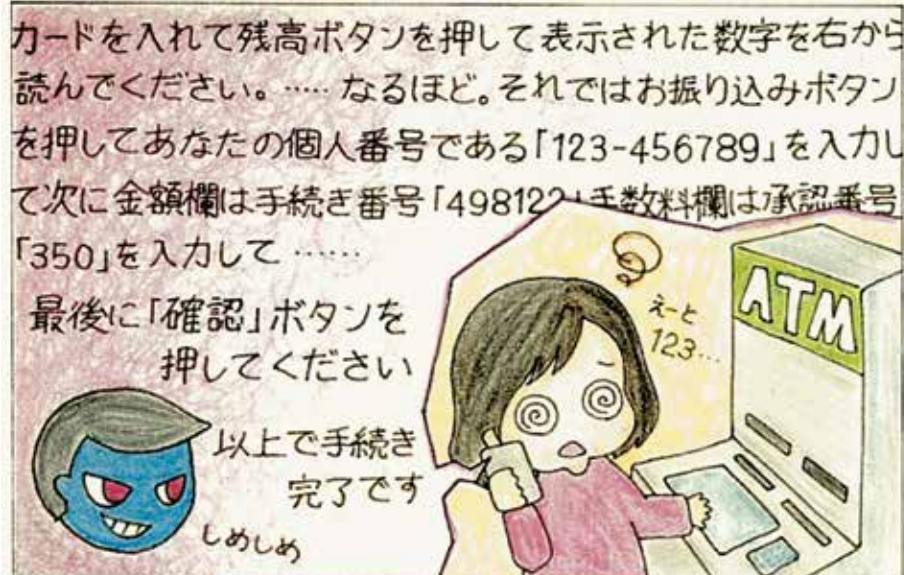 カードを入れて残高ボタンを押して表示された数字を右から
読んでください。…… なるほど。それではお振り込みボタン
を押してあなたの個人番号である「123-456789」を入力し
て次に金額欄は手続き番号「498122」手数料欄は承認番号
「350」を入力して ……
最後に「確認」ボタンを
押してください
以上で手続き
完了です
しめしめ
えーと
123…
ATM